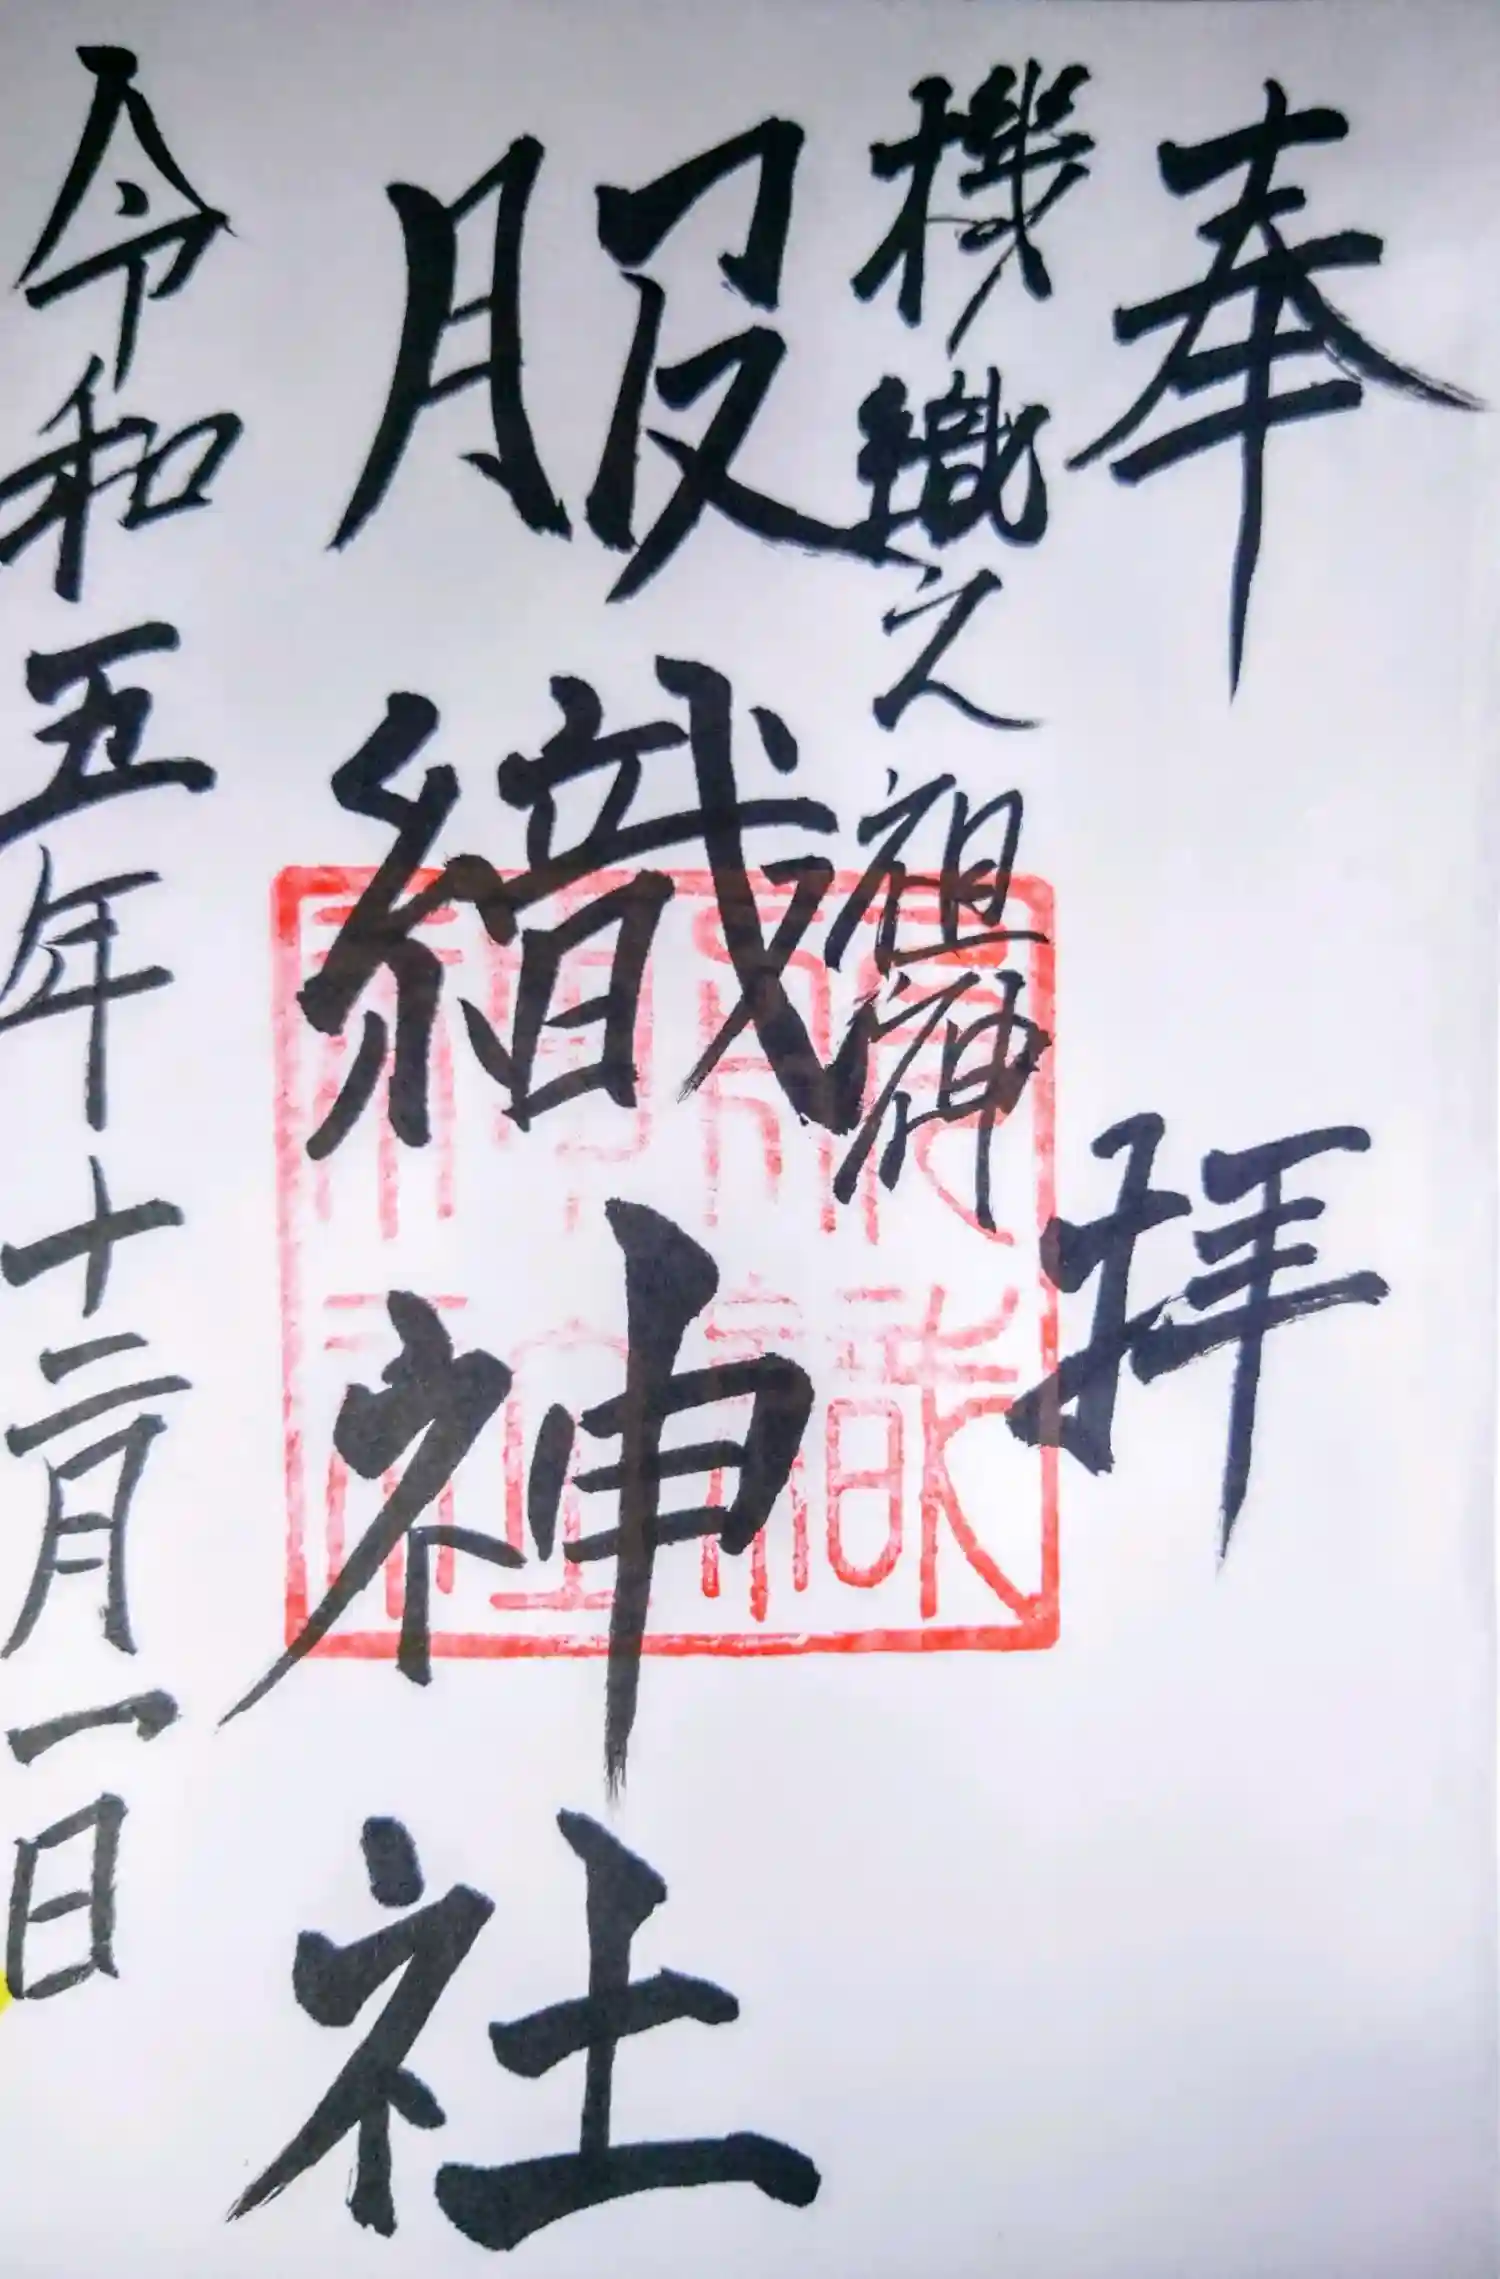 奉拝
機織之祖神
服織神社
令和五年十二月一日
服織神社